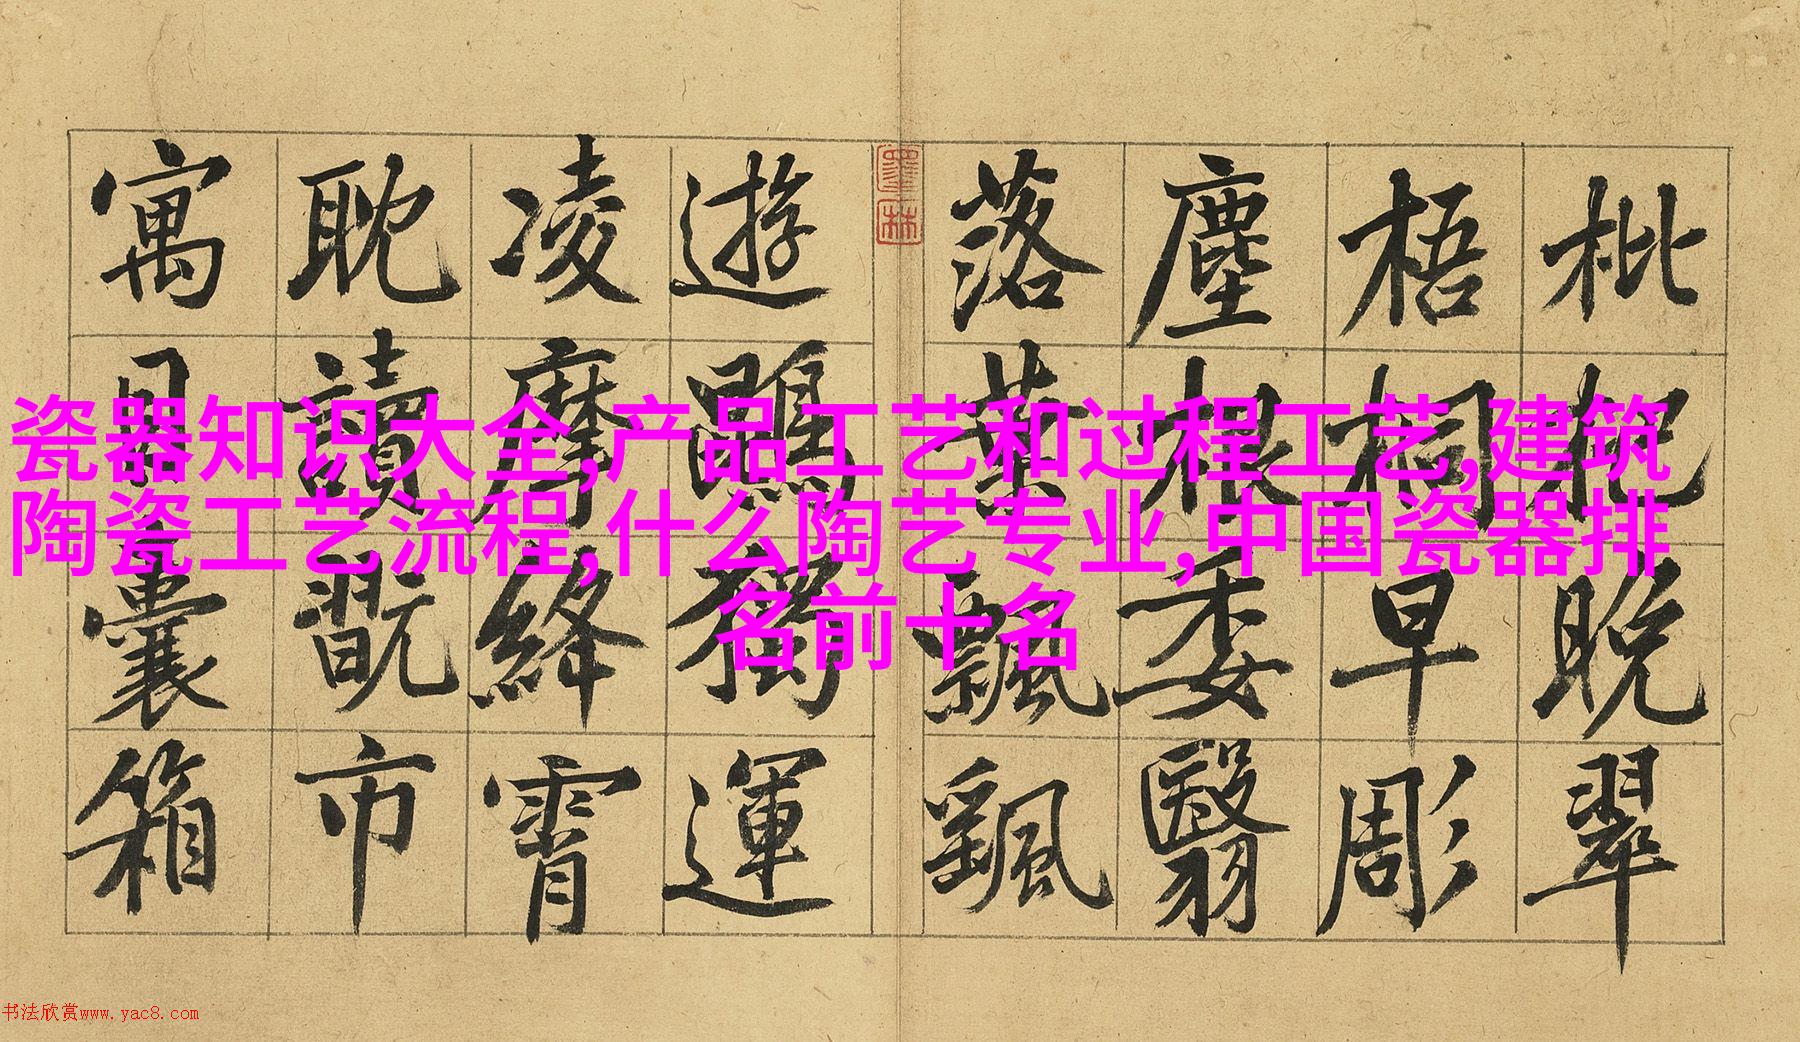 瓷器知识大全,产品工艺和过程工艺,建筑
陶瓷工艺流程,什么陶艺专业,中国瓷器排
名前十名
枇杷晚翠
梧桐早彫
塵根委翳
落葉飄颻
墨林
遊鵾獨運
凌摩絳霄
耽讀翫市
寓目囊箱
书法欣赏www.yac8.com